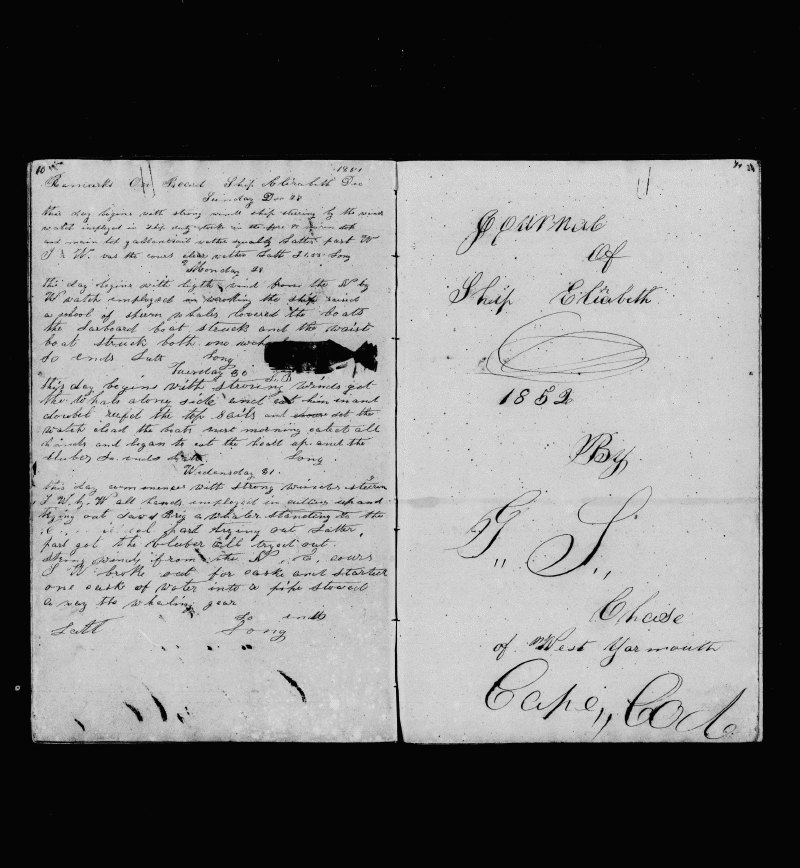 10 1851
Remarks On Board Ship Elizabeth Dec
Sunday Dec 28
this day begins with strong winds ship stering by the wind
watch employed in ship duty took in the fore & mizen top
and main top gallantsail wether squaly Latter part W
S W. was the cours clear wether Latt Long
Monday 29
this day begins with ligth wind from the N by
W watch employed in working the ship raised
a school of sperm whales lowered the boats
the Larboard boat struck and the waist
boat struck both one whale
So ends Latt Long
Tuesday 30
this day begins with strong winds got
the whale along side and cut him in and
doubel reefd the top sails and set the
watch clead the boats next morning caled all
hands and began to cut the head up and the
bluber So ends Latt Long
Widensday 31.
this day commences with strong winds steren
S W. by. W all hands employed in cutting up and
trying out saw a Brig a whaler standing to the
part trying out Latter
part got the bluber all tryed out
strong winds from the N, E, cours
S W broke out for casks and started
one cask of water into a pipe stowed
a way the whaling gear
So ends
Latt Long
Journal
Of
Ship Elizabeth
1852
By
G,, S,,
Chase
of West Yarmouth
Cape,, Cod